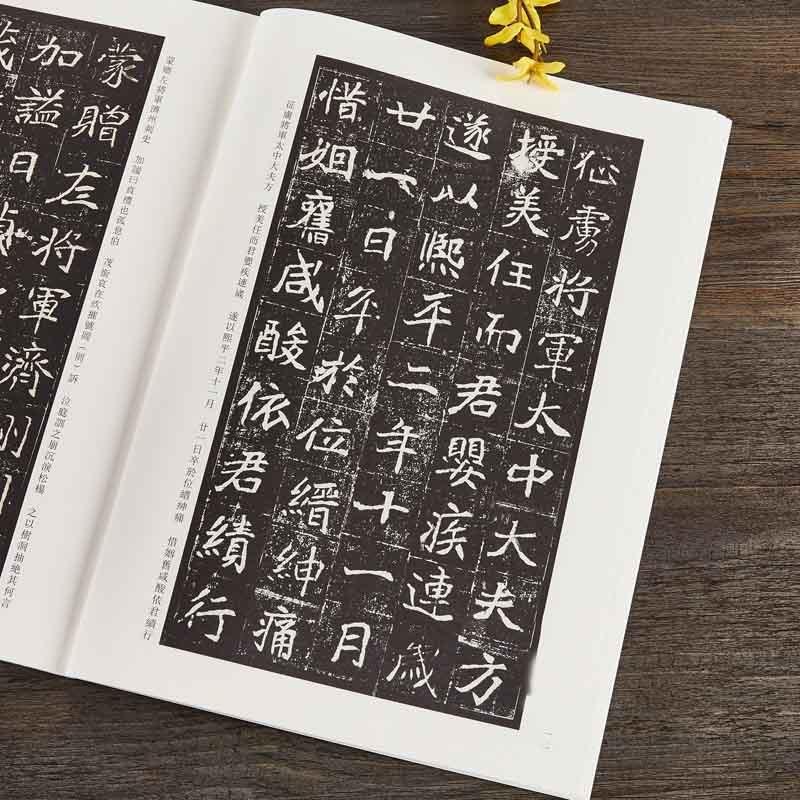 征虜將軍太中大夫方
授美任而君嬰疾連歲
遂以熙平二年十一月
廿一日卒於位縉紳痛
惜姻舊咸酸依君績行
征虜將軍太中大夫方　授美任而君嬰疾連歲　遂以熙平二年十一月　廿一日卒於位縉紳痛　惜姻舊咸酸依君績行
蒙贈左將軍濟州
加謚曰
蒙贈左將軍濟州刺史　加謚曰貞禮也孤息伯　茂銜哀在疚摧號罔（罔）訴　泣庭訓之崩沉淚松楊　之以樹洞抽絶其何言